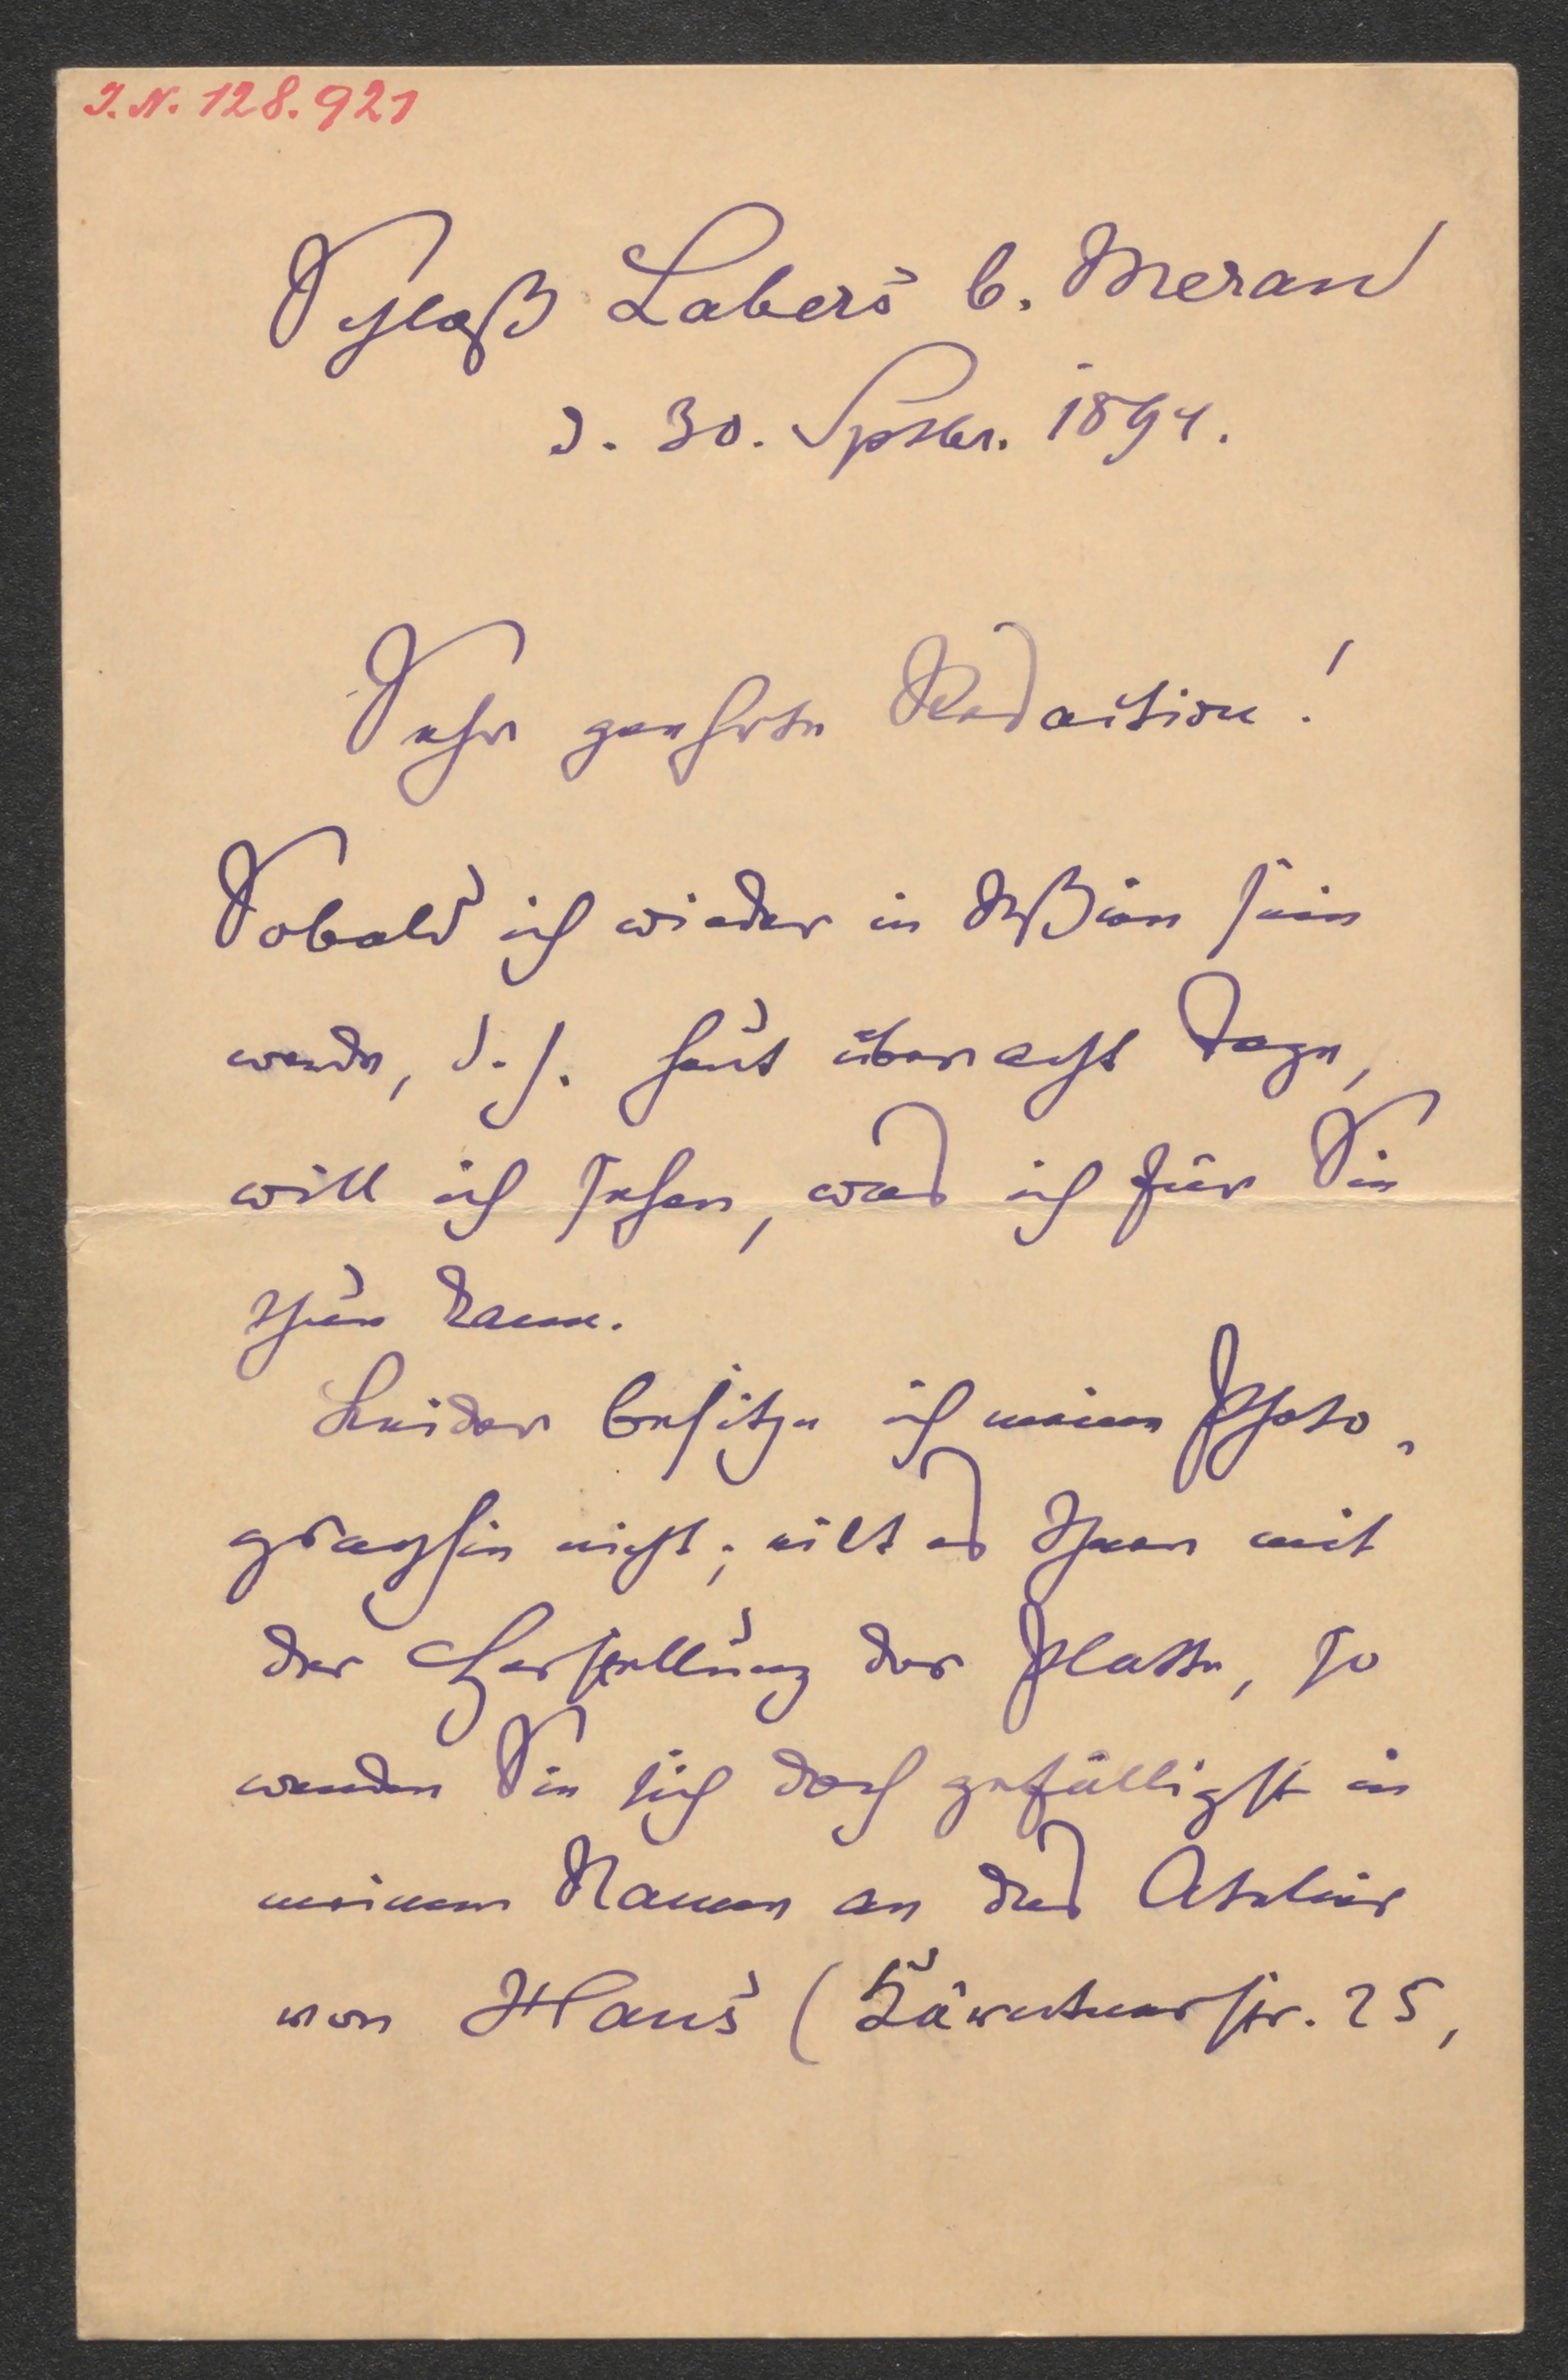 I. N. 128.921
Schloß Labers b. Meran
d. 30. Septbr. 1894.
Sehr geehrte Redaction!
Sobald ich wieder in Wien sein
werde, d. h. heut über acht Tage,
will ich sehen, was ich für Sie
thun kann.
Leider besitze ich meine Photo-
graphie nicht; eilt es Ihnen mit
der Herstellung der Platte, so
wenden Sie sich doch gefälligst in
meinem Namen an das Atelier
von (Kärntnerstr. 25,